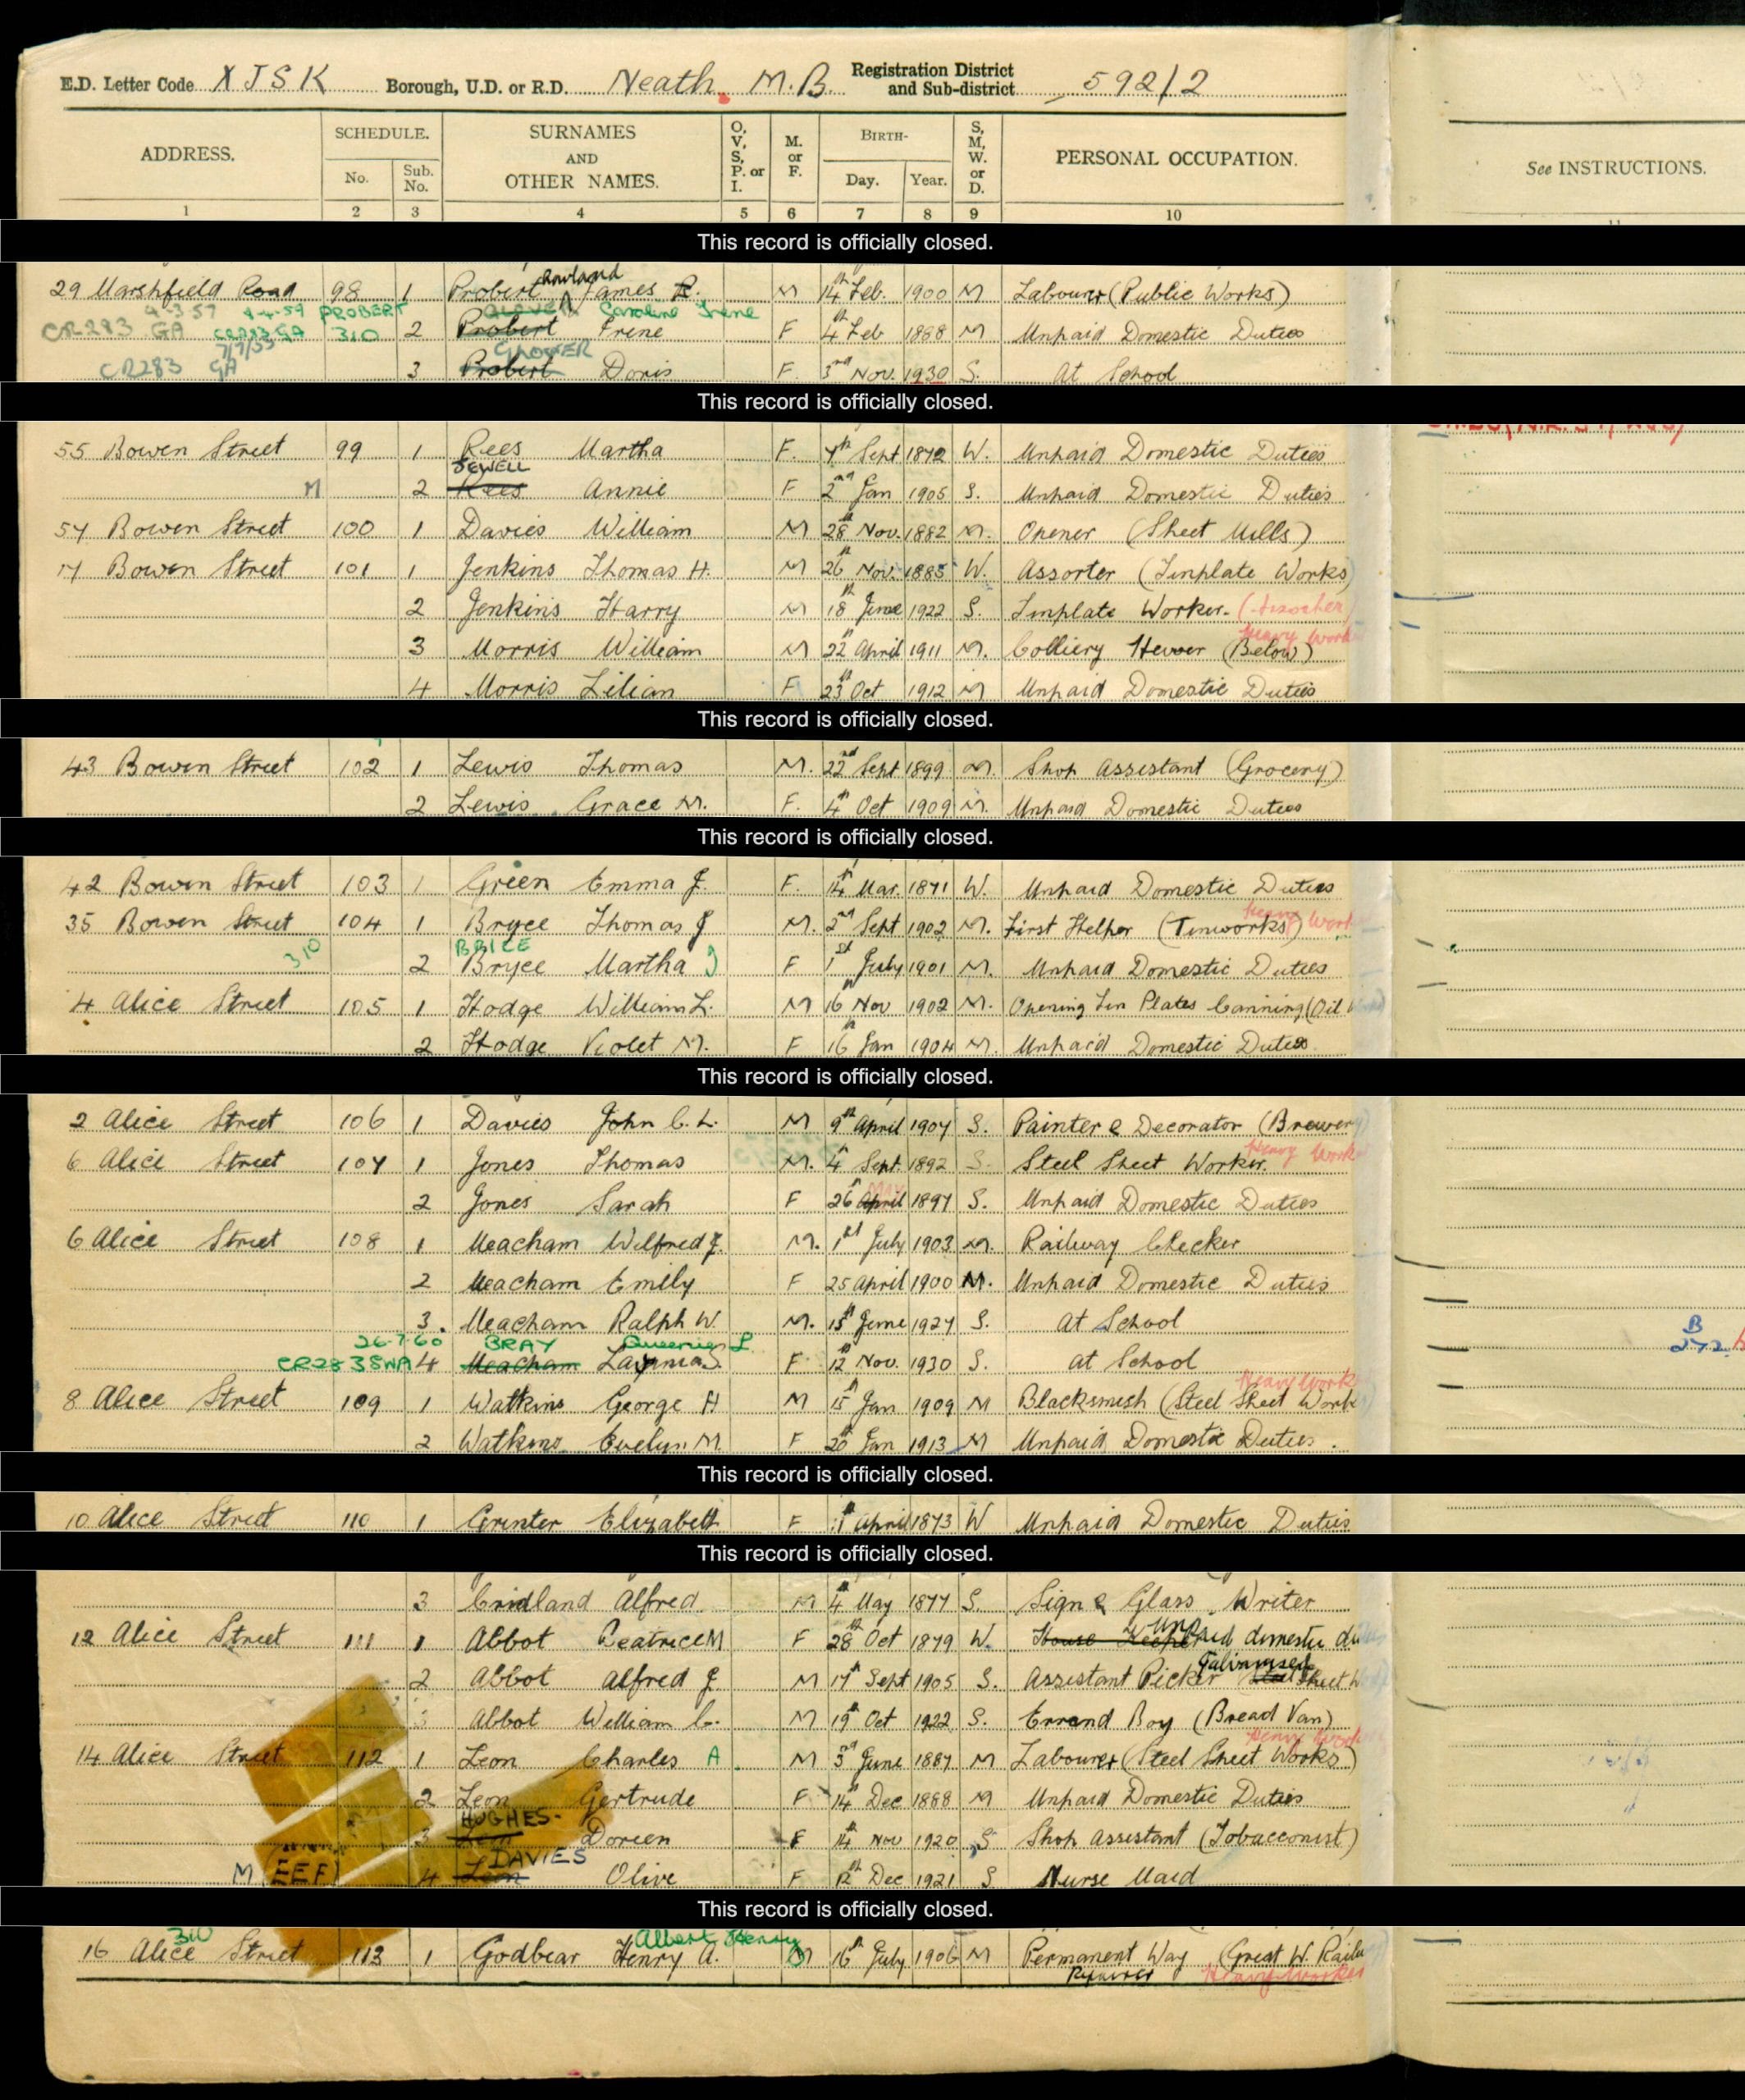 E.D. Letter Code XJSK Borough, U.D. or R.D. Neath M.B. Registration District and Sub-district 592/2
ADDRESS. SCHEDULE. No. Sub. No. SURNAMES AND OTHER NAMES. O, V, S, P. or I. M. or F. BIRTH- Day. Year. S, M, W. or D. PERSONAL OCCUPATION. See INSTRUCTIONS.
1 2 3 4 5 6 7 8 9 10
This record is officially closed.
29 Marshfield Road 98 1 Probert Rowland James R. M 14th Feb. 1900 M Labourer (Public Works)
4-59 PROBERT Caroline Irene
CR283 GA CR283 GA 310 2 Probert Irene F 4th Feb 1888 M Unpaid Domestic Duties
7/7/53 GLOVER
CR283 GA 3 Probert Doris F. 3rd Nov. 1930 S. At School
This record is officially closed.
55 Bowen Street 99 1 Rees Martha F. 7th Sept 1872 W. Unpaid Domestic Duties
JEWELL
M 2 Rees Annie F 2nd Jan 1905 S. Unpaid Domestic Duties
57 Bowen Street 100 1 Davies William M 28th Nov. 1882 M. Opener (Sheet Mills)
17 Bowen Street 101 1 Jenkins Thomas H. M 26th Nov. 1885 W. Assorter (Tinplate Works)
2 Jenkins Harry M 18th June 1922 S. Tinplate Worker.
Heavy Work
3 Morris William M 22nd April 1911 M. Colliery Hewer (Below)
4 Morris Lilian F 23rd Oct 1912 M Unpaid Domestic Duties
This record is officially closed.
43 Bowen Street 102 1 Lewis Thomas M. 22nd Sept 1899 M. Shop Assistant (Grocery)
2 Lewis Grace M. F. 4th Oct 1909 M. Unpaid Domestic Duties
This record is officially closed.
42 Bowen Street 103 1 Green Emma J. F. 14th Mar. 1871 W. Unpaid Domestic Duties
Heavy Work
35 Bowen Street 104 1 Bryce Thomas J M. 2nd Sept 1902 M. First Helper (Tinworks)
310 BRICE
2 Bryce Martha J F 1st July 1901 M. Unpaid Domestic Duties
4 Alice Street 105 1 Hodge William L. M 16th Nov 1902 M. Opening Tin Plates Canning (Oil
2 Hodge Violet M. F 16th Jan 1904 M. Unpaid Domestic Duties
This record is officially closed.
2 Alice Street 106 1 Davies John C. L. M 9th April 1907 S. Painter & Decorator (Brewery
Heavy Work
6 Alice Street 107 1 Jones Thomas M. 4th Sept. 1892 S. Steel Sheet Worker.
MAY
2 Jones Sarah F 26th April 1897 S. Unpaid Domestic Duties
6 Alice Street 108 1 Meacham Wilfred J. M. 1st July 1903 M. Railway Checker
2 Meacham Emily F 25 April 1900 M. Unpaid Domestic Duties
3. Meacham Ralph W. M. 15th June 1927 S. at School
26-7-60 BRAY L B
CR283 SWA 4 Meacham F 12th Nov. 1930 S. at School 272
Heavy Work
8 Alice Street 109 1 Watkins George H M 15th Jan 1909 M Blacksmith (Steel Sheet Work
2 Watkins Evelyn M. F 20th Jan 1913 M Unpaid Domestic Duties.
This record is officially closed.
10 Alice Street 110 1 Grinter Elizabeth F 1st April 1873 W Unpaid Domestic Duties
This record is officially closed.
3 Cridland Alfred M 4th May 1877 S. Sign & Glass Writer
12 Alice Street 111 1 Abbot Beatrice M F 28th Oct 1879 W. House Keeper Unpaid domestic du
Galvanised
2 Abbot Alfred J. M 17th Sept 1905 S. Assistant Picker Steel Sheet W
3 Abbot William C. M 19th Oct 1922 S. Errand Boy (Bread Van)
Heavy Work
14 Alice Street 112 1 Leon Charles A M 3rd June 1887 M Labourer (Steel Sheet Works)
2 Leon Gertrude F 14th Dec 1888 M Unpaid Domestic Duties
HUGHES
3 Leon Doreen F 14th Nov 1920 S Shop Assistant (Tobacconist)
DAVIES
M EEF 4 Leon Olive F 12th Dec 1921 S Nurse Maid
This record is officially closed.
310 Albert Henry
16 Alice Street 113 1 Godbear Henry A. M 16th July 1906 M Permanent Way (Great W. Railw
Repairer Heavy Worker